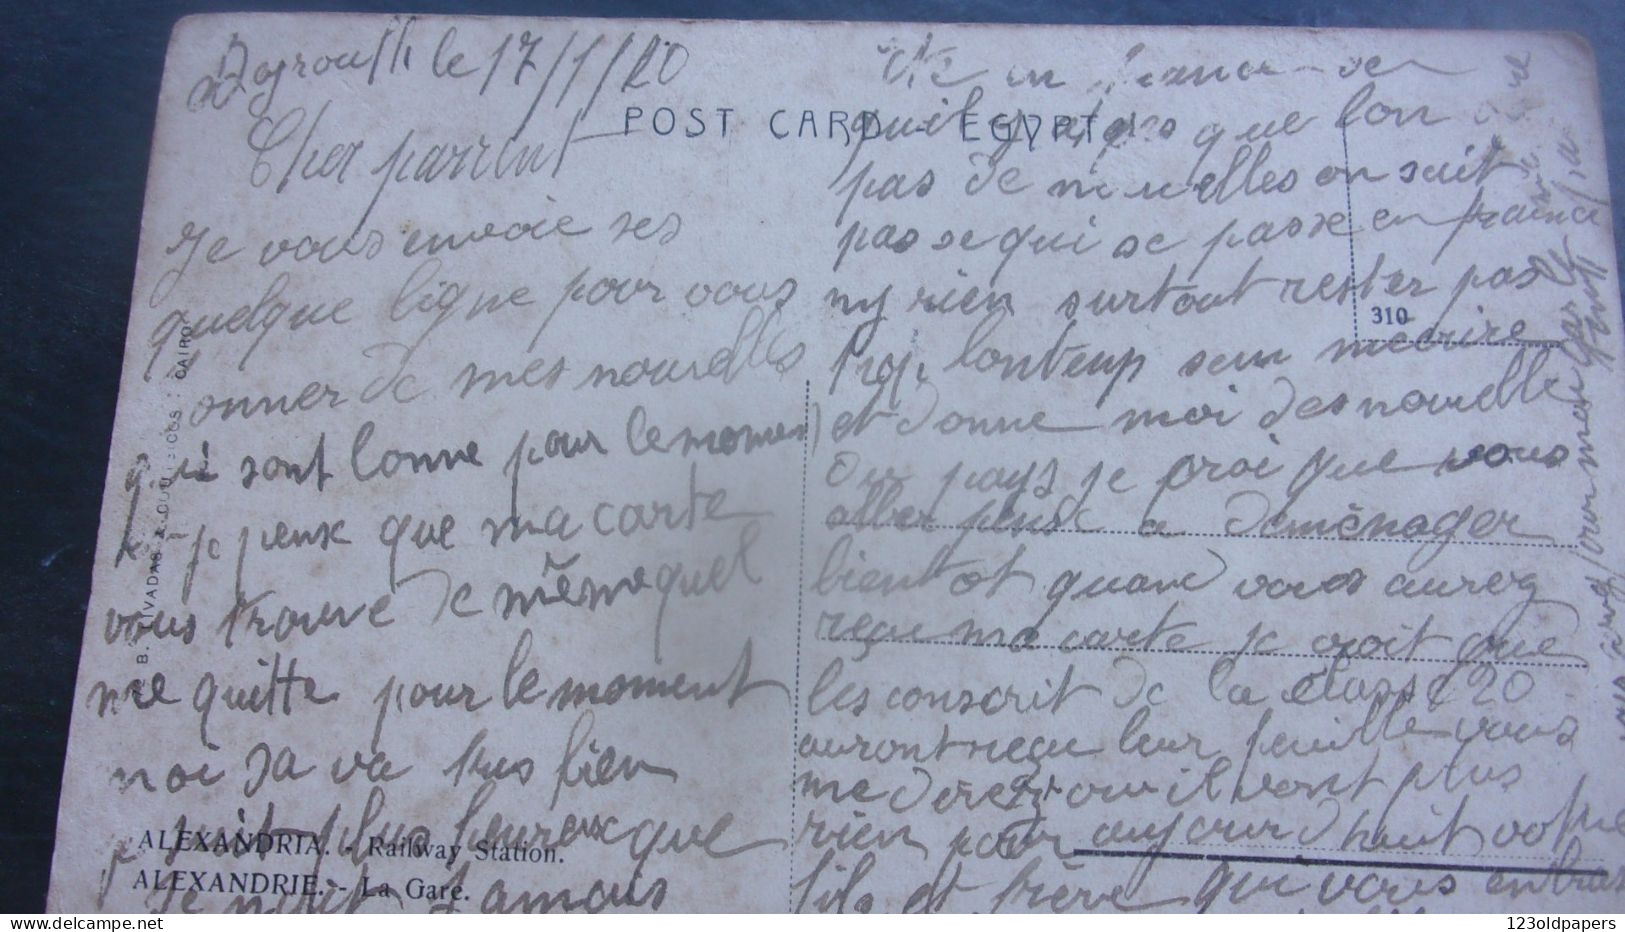 le 17/1/20
Cher parrent
Je vous envoie ses
quelque ligne pour vous
onner de mes nouvelles
qui sont bonne pour le momen
je peux que ma carte
vous trouve de même quel
me quitte pour le moment
moi sa va tres bien
je suit plus heureux que
jamais
POST CARD - EGYPT
en france
que lon
pas de nouvelles on sait
pas se qui se passe en france
ny rien surtout rester pas
trop lonteup sem mecrire
et donne moi des nouvelle
du pays je croi que vous
aller pensé a deménager
bientot quand vous aurez
reçu ma carte je croit que
les conscrit de la classe 20
auront reçu leur feuille vous
me direz ou il vont plus
rien pour aujourdhuit votre
fils et frère qui vous embras
310
B. LIVADAS & COUTSICOS : CAIRO
ALEXANDRIA. - Railway Station.
ALEXANDRIE. - La Gare.
123oldpapers